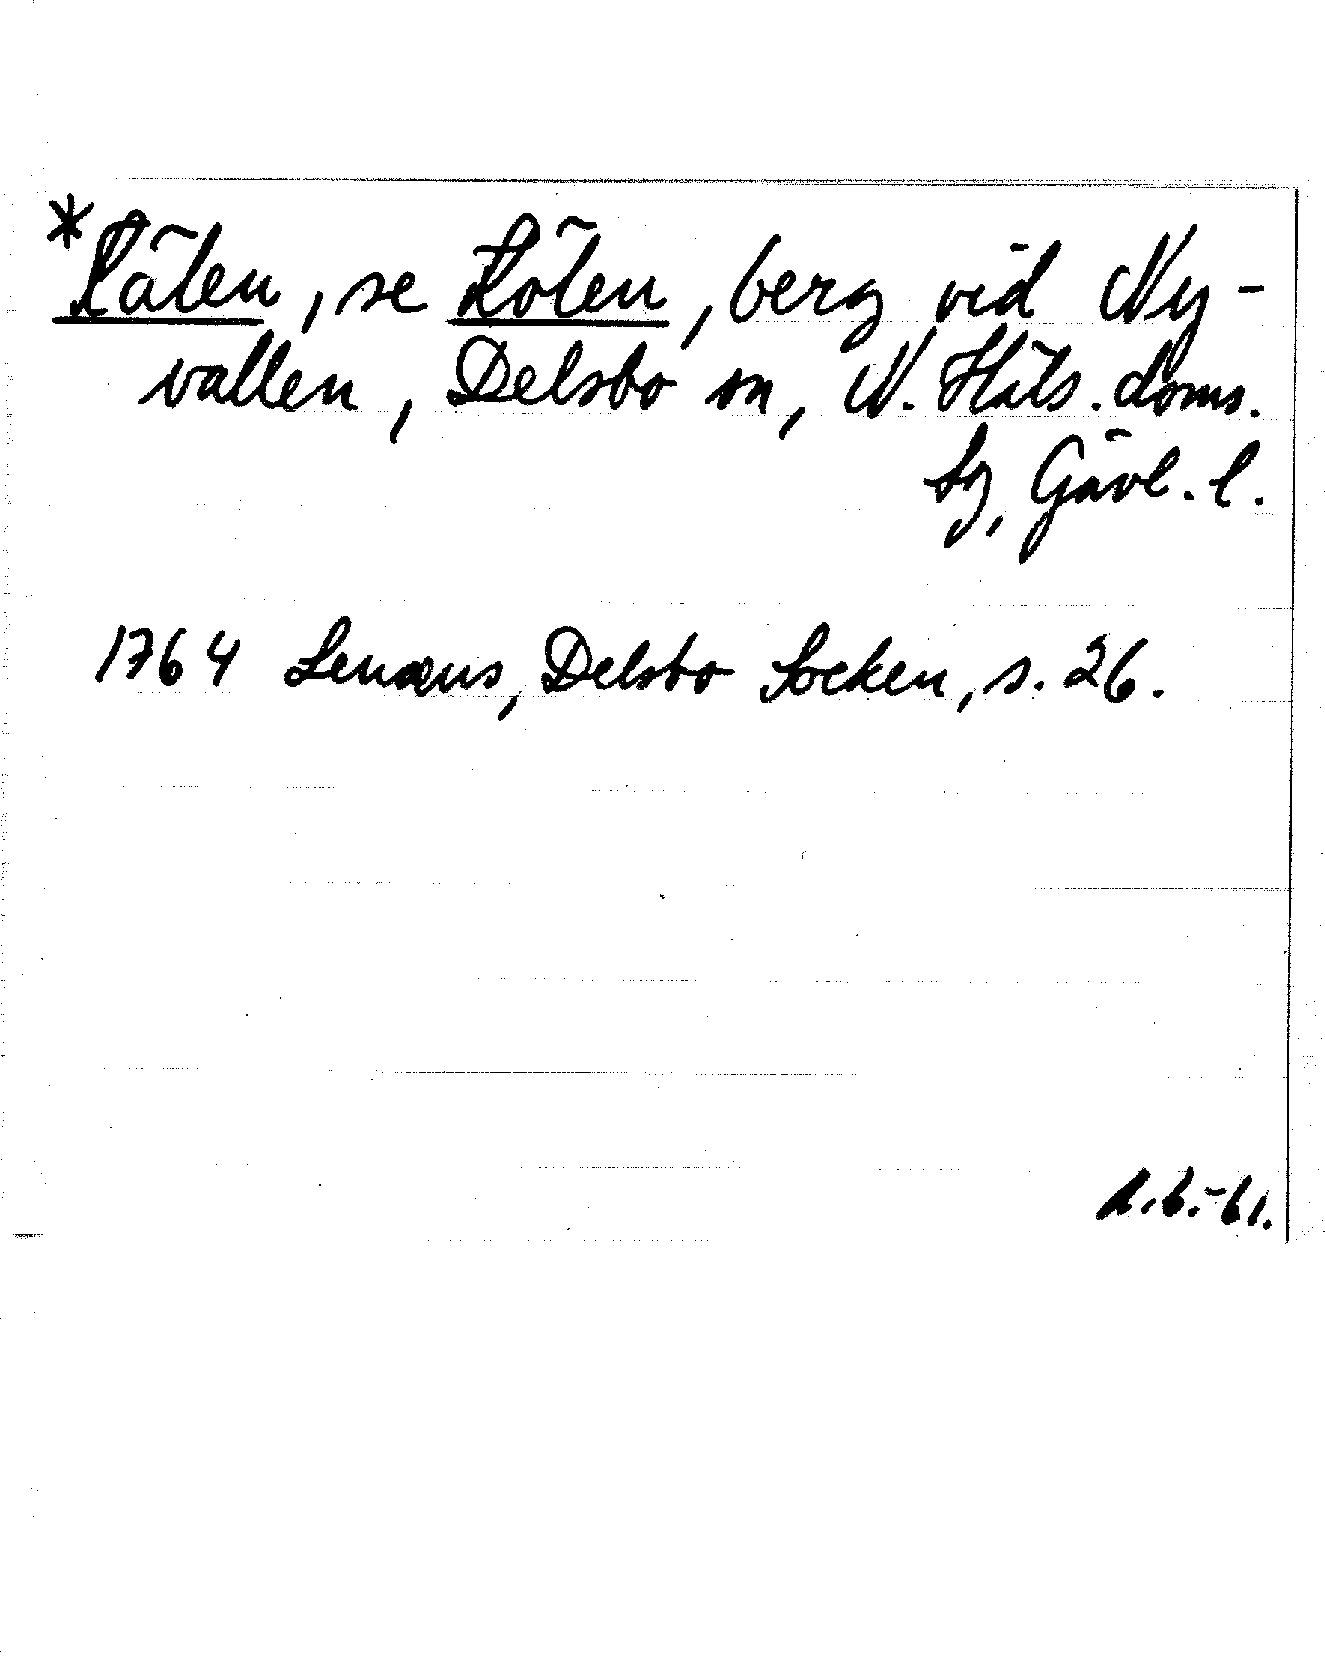 *Kälen, se Kölen, berg vid Ny-
vallen, Delsbo sn, N. Häls. doms.
Sg, Gävl. l.
1764 Lenæus, Delsbo Socken, s. 26.